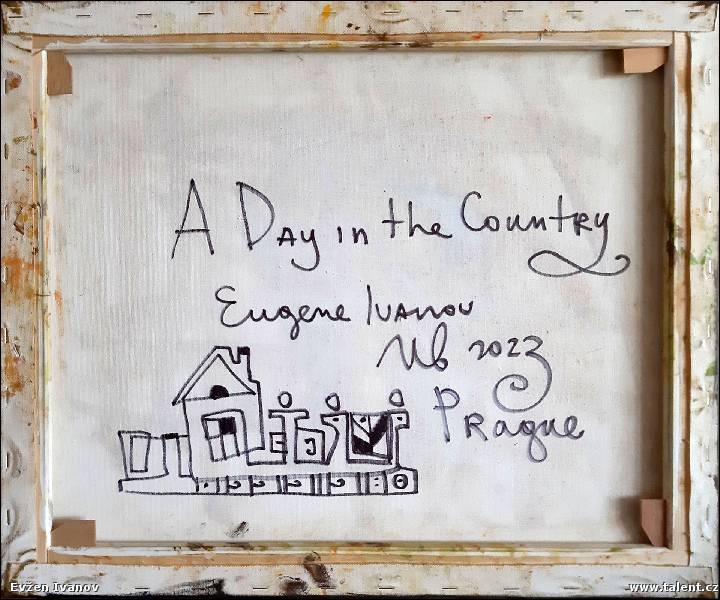 A Day in the Country
Eugene Ivanov
2023
Prague
Evžen Ivanov
www.talent.cz